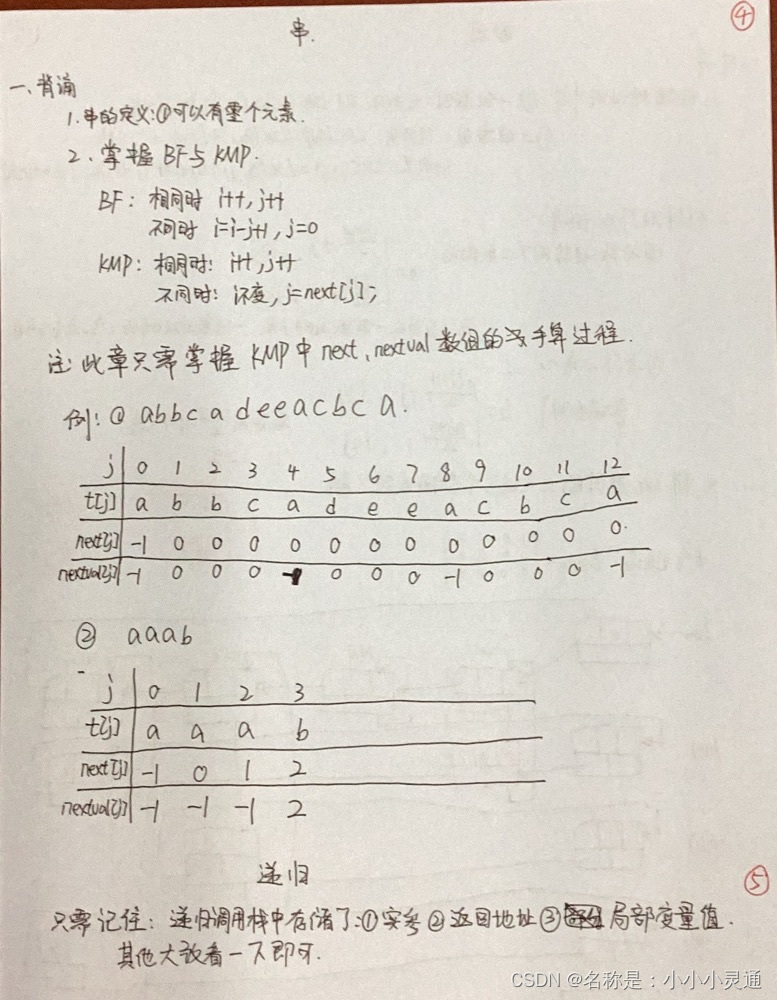 ④
串.
一、背诵
1.串的定义:①可以有零个元素.
2、掌握BF与KMP.
BF: 相同时 i++, j++
不同时 i=i-j+1, j=0
KMP: 相同时: i++, j++
不同时: i不变, j=next[j];
注: 此章只需掌握KMP中next、nextval数组的手算过程.
例: ① abbcadeeacbca.
j 0 1 2 3 4 5 6 7 8 9 10 11 12
t[j] a b b c a d e e a c b c a
next[j] -1 0 0 0 0 0 0 0 0 0 0 0 0.
nextval[j] -1 0 0 0 -1 0 0 0 -1 0 0 0 -1
② aaab
j 0 1 2 3
t[j] a a a b
next[j] -1 0 1 2
nextval[j] -1 -1 -1 2
递归
⑤
只需记住: 递归调用栈中存储了:①实参②返回地址③局部变量值.
其他大致看一下即可.
CSDN @名称是:小小小灵通